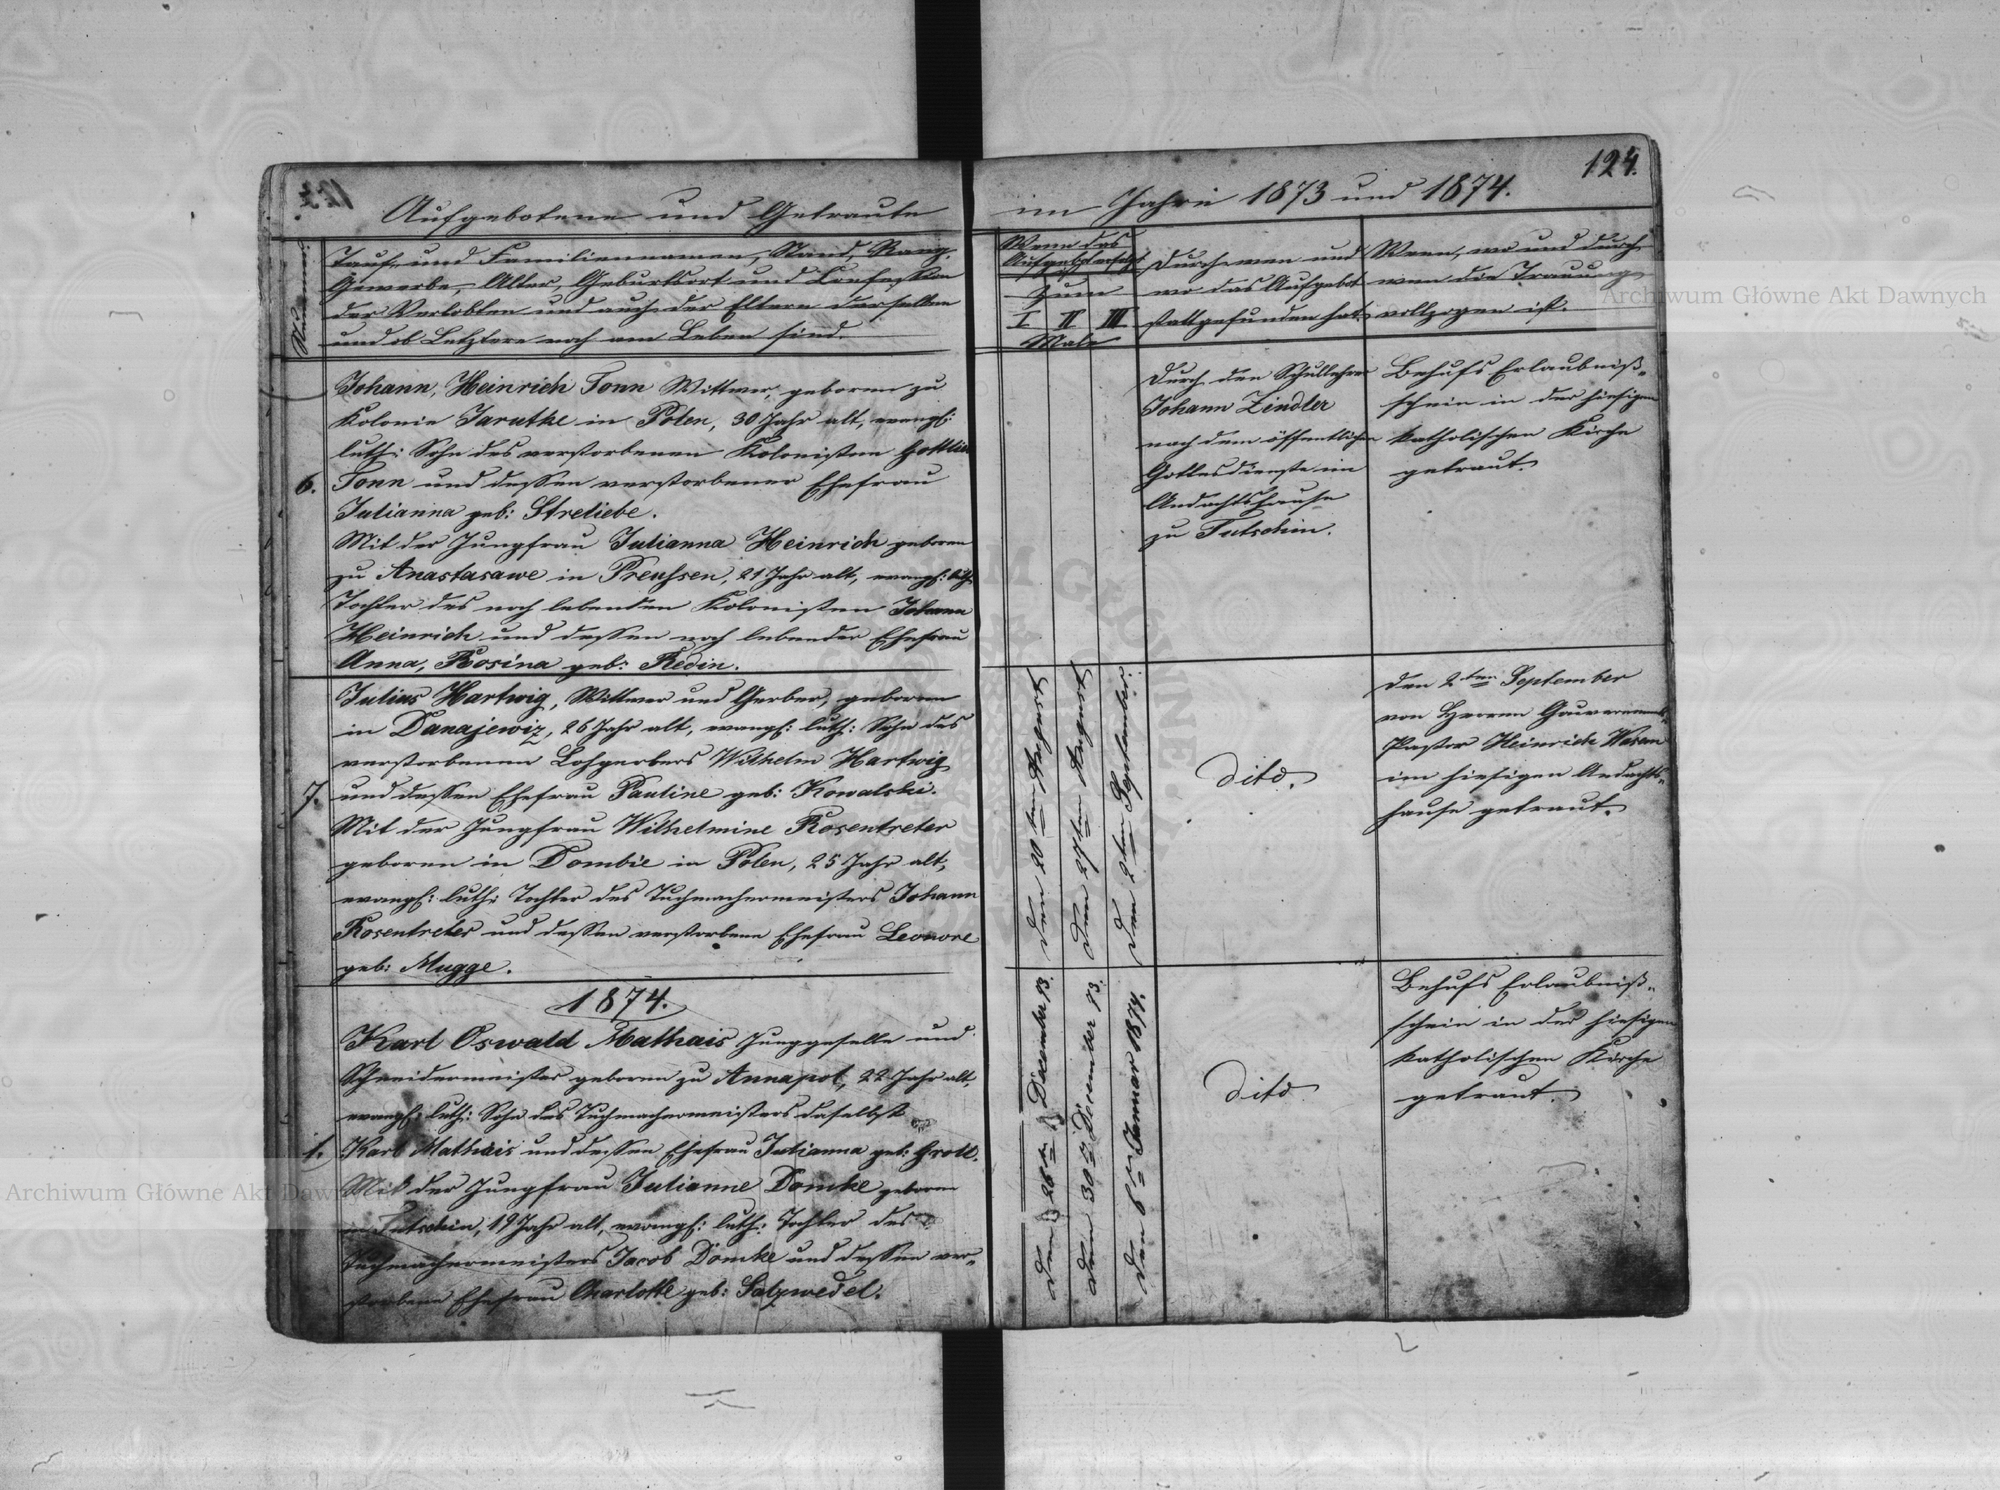 124.
Aufgebotene und Getraute
im Jahre 1873 und 1874.
Numeri
Tauf- und Familiennamen, Stand, Rang,
Gewerbe, Alter, Geburtsort und Confession
der Verlobten und auch der Eltern derselben
und ob Letztere noch am Leben sind.
Wenn das
Aufgebot erfolgt ist
zum
I II III
Male
Durch wen und
wo das Aufgebot
stattgefunden hat.
Wenn, wo und durch
wen die Trauung
vollzogen ist.
6.
Johann, Heinrich Tonn Wittwer, geboren zu
Kolonie Jarutke in Polen, 30 Jahr alt, evangl:
luth: Sohn des verstorbenen Kolonisten Gottlieb
Tonn und dessen verstorbener Ehefrau
Julianna geb: Streliebe.
Mit der Jungfrau Julianna Heinrich geboren
zu Anastasawe in Preußen, 21 Jahr alt, evangl: luth:
Tochter des noch lebenden Kolonisten Johann
Heinrich und dessen noch lebender Ehefrau
Anna, Rosina geb: Redin.
Durch den Schullehrer
Johann Zindler
nach dem öffentlichen
Gottesdienste im
Andachtshause
zu Tutschin.
Behufs Erlaubniß-
schein in der hiesigen
katholischen Kirche
getraut.
7.
Julius Hartwig, Wittwer und Gerber, geboren
in Danajewiz, 26 Jahr alt, evangl: luth: Sohn des
verstorbenen Lohgerbers Wilhelm Hartwig
und dessen Ehefrau Pauline geb: Kowalski.
Mit der Jungfrau Wilhelmine Rosentreter
geboren in Dombie in Polen, 25 Jahr alt,
evangl: luth: Tochter des Tuchmachermeisters Johann
Rosentreter und dessen verstorbene Ehefrau Leonore
geb: Mugge.
den 20ten August
den 27ten August
den 2ten September.
dito.
den 2ten September
von Herrn Gouvernements-
Pastor Heinrich Wasem
im hiesigen Andachts-
hause getraut.
1874.
1.
Karl Oswald Mathais Junggeselle und
Schneidermeister geboren zu Annapol, 22 Jahr alt,
evangl: luth: Sohn des Tuchmachermeisters daselbst
Karl Mathais und dessen Ehefrau Julianna geb: Groll.
Mit der Jungfrau Julianne Domke geboren
in Tutschin, 19 Jahr alt, evangl: luth: Tochter des
Tuchmachermeisters Jacob Domke und dessen ver-
storbene Ehefrau Charlotte geb: Salzwedel.
den 26ten December 73.
den 30ten December 73.
den 6ten Januar 1874.
dito
Behufs Erlaubniß-
schein in der hiesigen
katholischen Kirche
getraut.
Archiwum Główne Akt Dawnych
Archiwum Główne Akt Dawnych